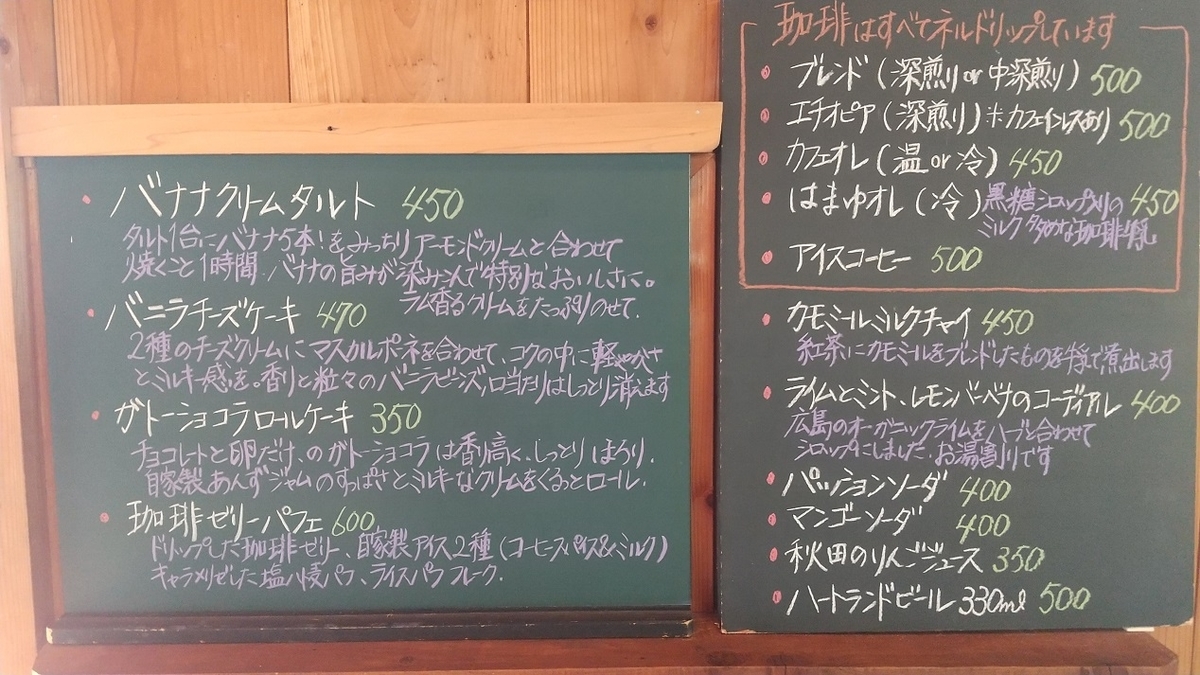 バナナクリームタルト 450
タルト1台にバナナ5本!をみっちりアーモンドクリームと合わせて
焼くこと1時間。バナナの旨みが染みこんで特別なおいしさに。
ラム香るクリームをたっぷりのせて。
バニラチーズケーキ 470
2種のチーズクリームにマスカルポーネを合わせて、コクの中に軽やかさ
とミルキー感を。香りと粒々のバニラビーンズ、口当たりはしっとり消えます
ガトーショコラロールケーキ 350
チョコレートと卵だけ、のガトーショコラは香り高く、しっとりほろり。
自家製あんずジャムのすっぱさとミルキーなクリームをくるっとロール。
珈琲ゼリーパフェ 600
ドリップした珈琲ゼリー、自家製アイス2種(コーヒースパイス&ミルク)
キャラメリゼした塩小麦パフ、ライスパフフレーク。
珈琲はすべてネルドリップしています
ブレンド(深煎り or 中深煎り) 500
エチオピア(深煎り)※カフェインレスあり 500
カフェオレ(温 or 冷) 450
はまゆオレ(冷) 黒糖シロップ入りの 450
ミルク多めな珈琲牛乳
アイスコーヒー 500
カモミールミルクチャイ 450
紅茶にカモミールをブレンドしたものを牛乳で煮出します
ライムとミント、レモンバーベナのコーディアル 400
広島のオーガニックライムをハーブと合わせて
シロップにしました。お湯割りです
パッションソーダ 400
マンゴーソーダ 400
秋田のりんごジュース 350
ハートランドビール 330ml 500